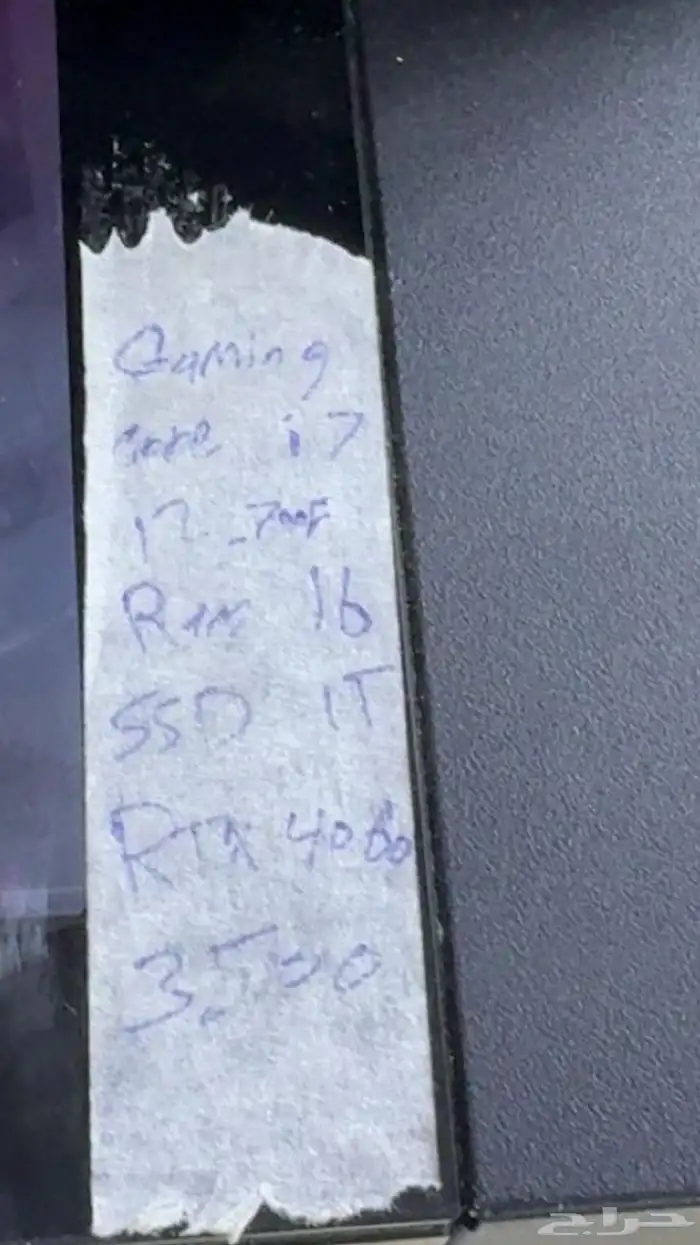 Gaming
core i7
12-700F
Ram 16
SSD 1T
RTX 4060
3,500
حراج